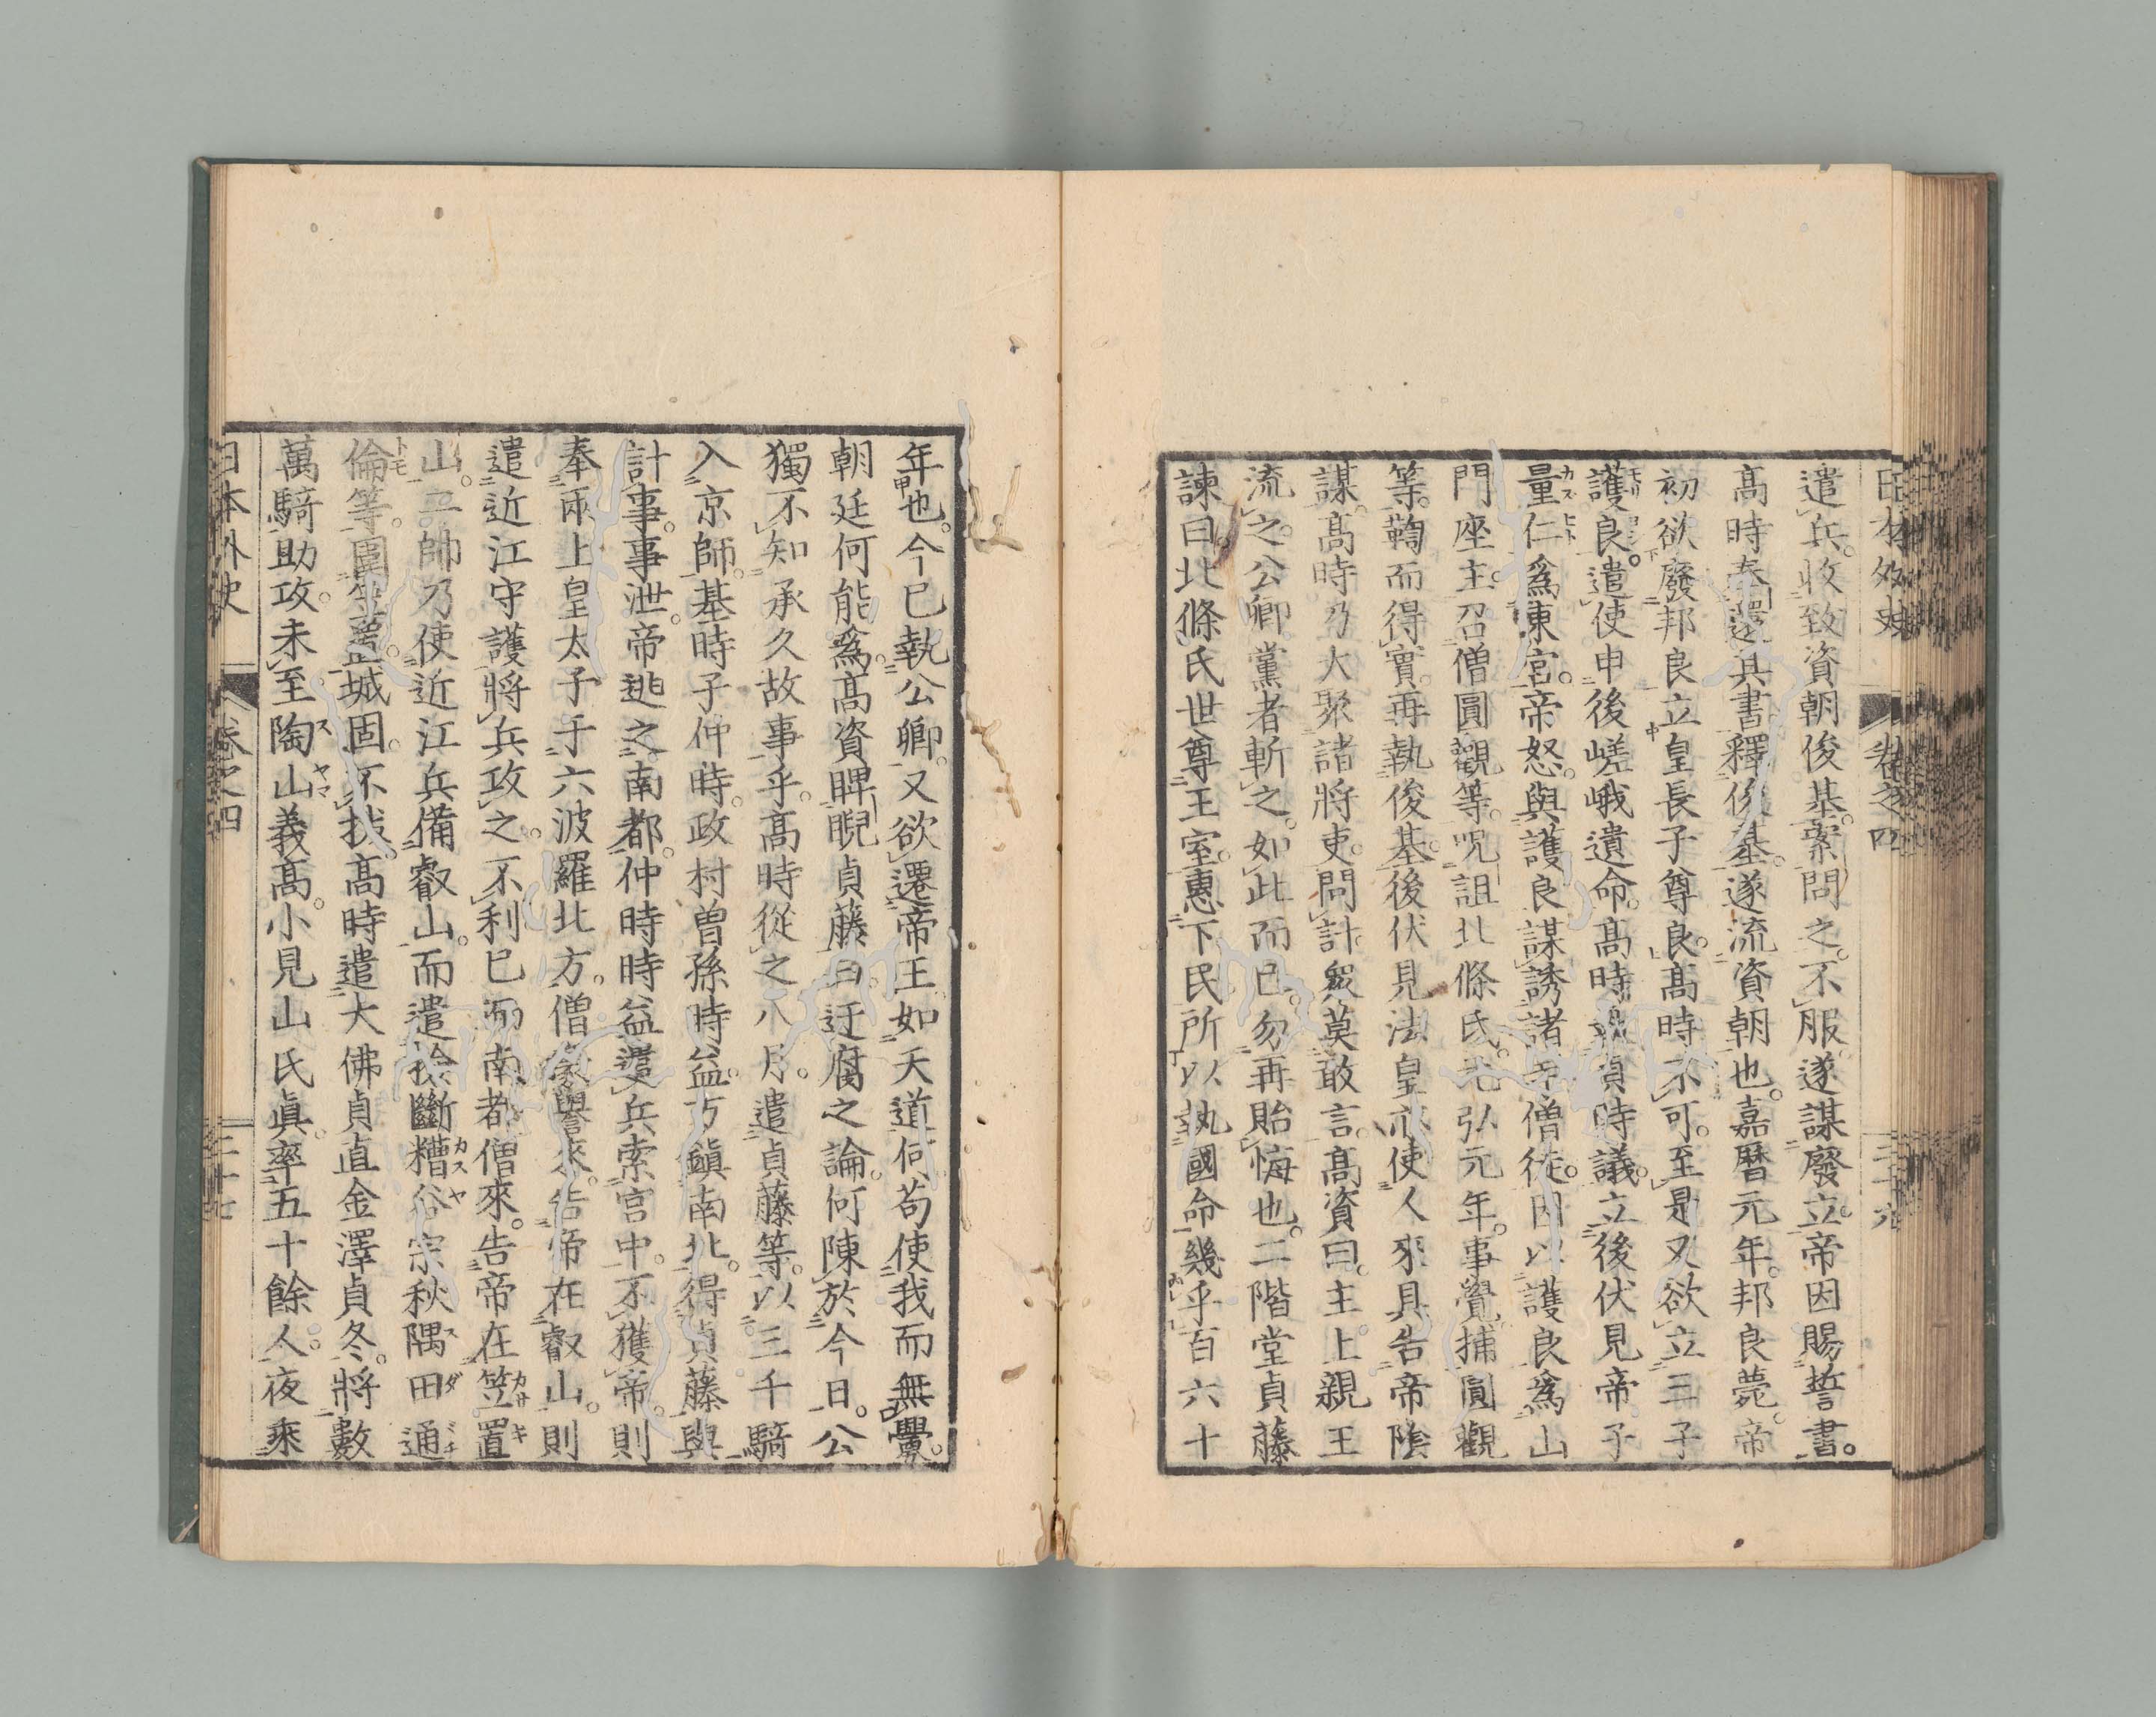 日本外史 卷之四
遣兵。收致資朝俊基。案問之。不服遂謀廢立。帝因賜誓書。
高時奉還其書。釋俊基。遂流資朝也。嘉曆元年。邦良薨。帝
初欲廢邦良立皇長子尊良。高時不可。至是又欲立三子
護良。遣使申後嵯峨遺命。高時議立後伏見帝子
量仁爲東宮。帝怒。與護良謀誘諸僧徒。因以護良爲山
門座主。召僧圓觀等。呪詛北條氏。元弘元年。事覺捕圓觀
等。鞫而得實。再執俊基。後伏見法皇亦使人來具告帝陰
謀。高時乃大聚諸將吏。問計。衆莫敢言。高資曰。主上親王
流之。公卿黨者斬之。如此而已。勿再貽悔也。二階堂貞藤
諫曰。北條氏世尊王室。惠下民所以執國命幾乎百六十
年也。今已執公卿。又欲遷帝王如天道何。苟使我而無釁。
朝廷何能爲。高資睥睨貞藤曰。迂腐之論。何陳於今日。公
獨不知承久故事乎。高時從之八月。遣貞藤等。以三千騎
入京師。基時子仲時。政村曾孫時益方鎭南北。得貞藤與
計事。事泄。帝逃之南都。仲時時益遣兵索宮中。不獲帝。則
奉兩上皇太子于六波羅北方。僧豪譽來告帝在叡山。則
遣近江守護將兵攻之。不利已而南都僧來。告帝在笠置
山。二帥乃使近江兵備叡山。而遣檢斷糟谷宗秋隅田通
倫等。圍笠置。城固。不拔高時遣大佛貞直金澤貞冬。將數
萬騎助攻。未至陶山義高。小見山氏眞。率五十餘人。夜乘
日本外史 卷之四